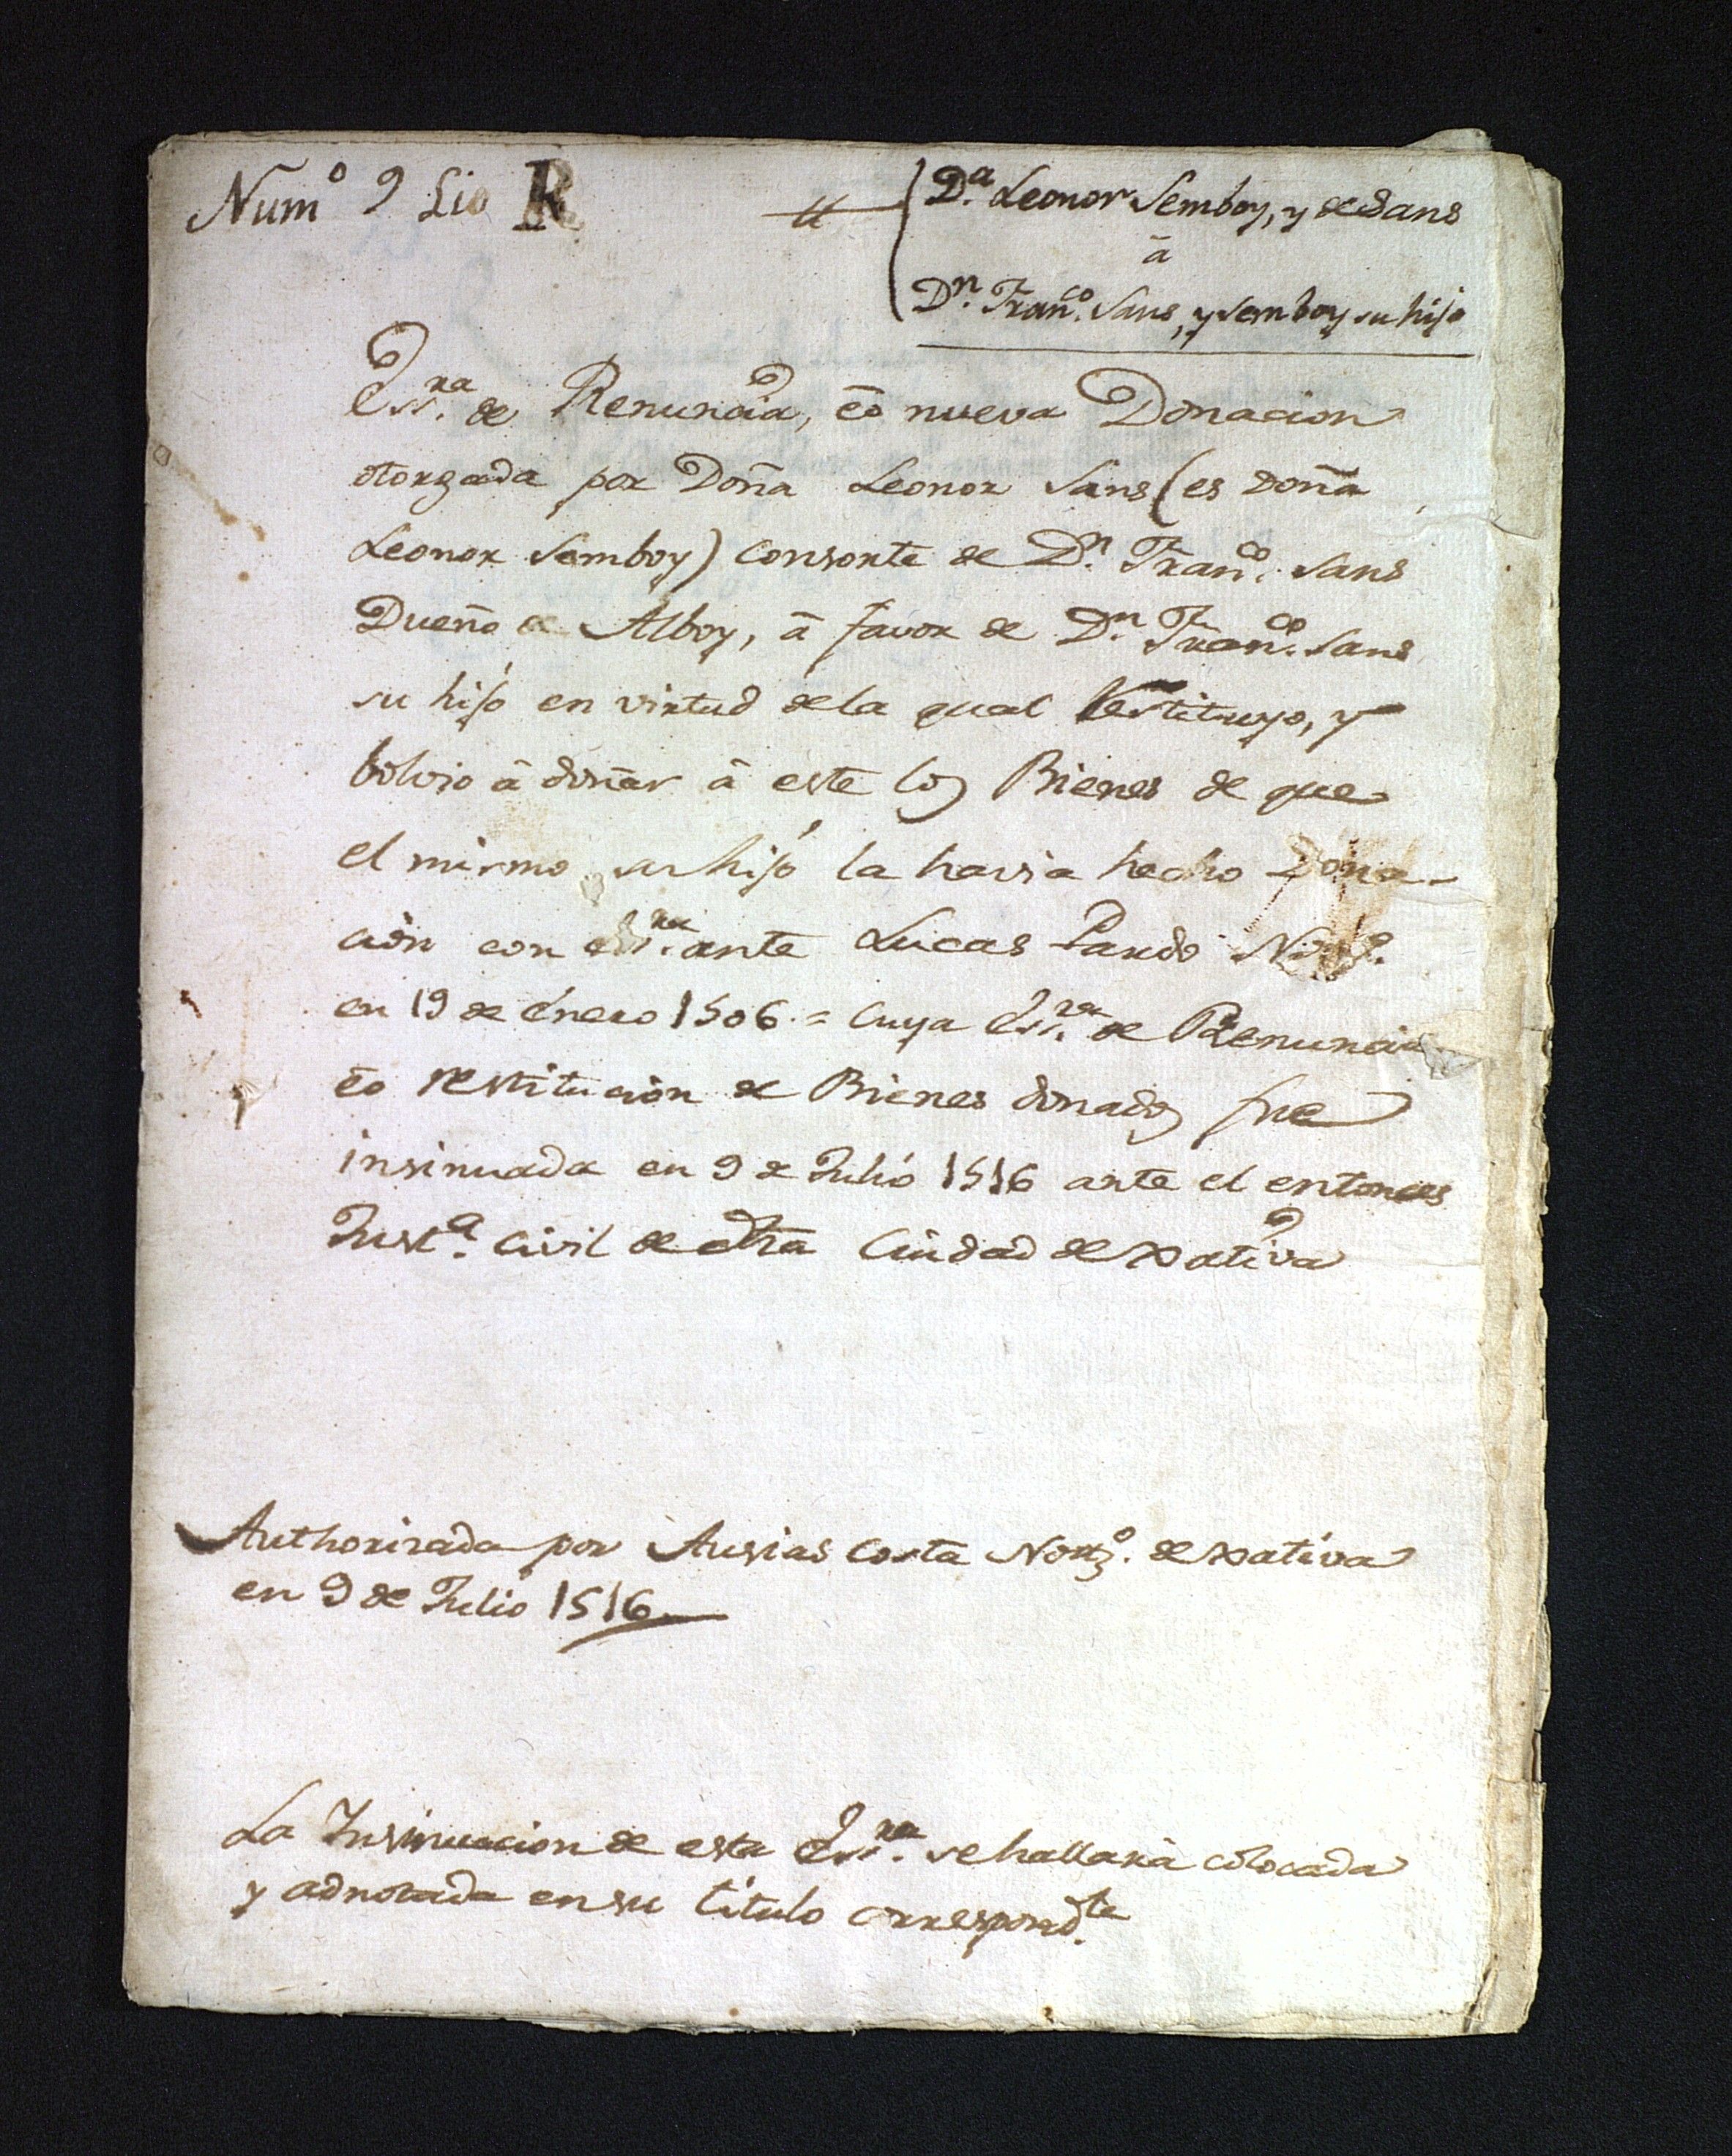 Num.º 9 Lio R
D.ª Leonor Semboy, y de Sans
â
D.n Fran.co Sans, y Semboy su hijo
Ess.ra de Renuncia, êo nueva Donacion
otorgada por Doña Leonor Sans (es Doña
Leonor Semboy) consorte de D.n Fran.co Sans
Dueño de Alboy, â favor de D.n Fran.co Sans
su hijo en virtud dela qual Restituyo, y
bolvio â donar â este los Bienes de que
el mismo su hijo la havia hecho Dona-
cion con ess.ra ante Lucas Pardo Not.º
en 19 de Enero 1506 = cuya Ess.ra de Renuncia
êo restitucion de Bienes donados fue
insinuada en 9 de Julio 1516 ante el entonces
Just.a Civil de dha Ciudad de Xativa
Authorizada por Ausias Costa Nott.º de Xativa
en 9 de Julio 1516
La Insinuacion de esta Ess.ra se hallarà colocada
y adnotada en su titulo correspond.te